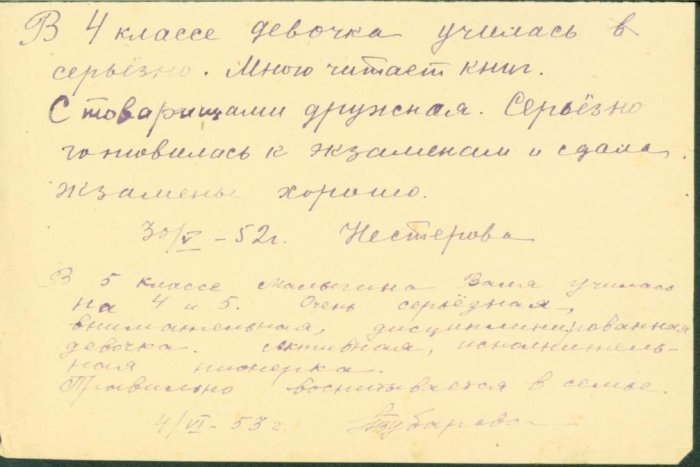 В 4 классе девочка училась в
серьёзно. Много читает книг.
С товарищами дружная. Серьёзно
готовилась к экзаменам и сдала
экзамены хорошо.
30/V - 52 г. Нестерова
В 5 классе Малыгина Валя училась
на 4 и 5. Очень серьёзная,
внимательная, дисциплинированная
девочка. Активная, исполнитель-
ная пионерка.
Правильно воспитывается в семье.
4/VI - 53 г.